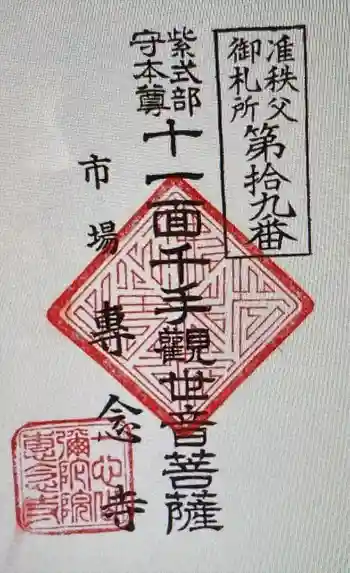 准秩父
御札所
第拾九番
紫式部
守本尊
十一面千手觀世音菩薩
市場
專念寺
彌陀院
專念寺